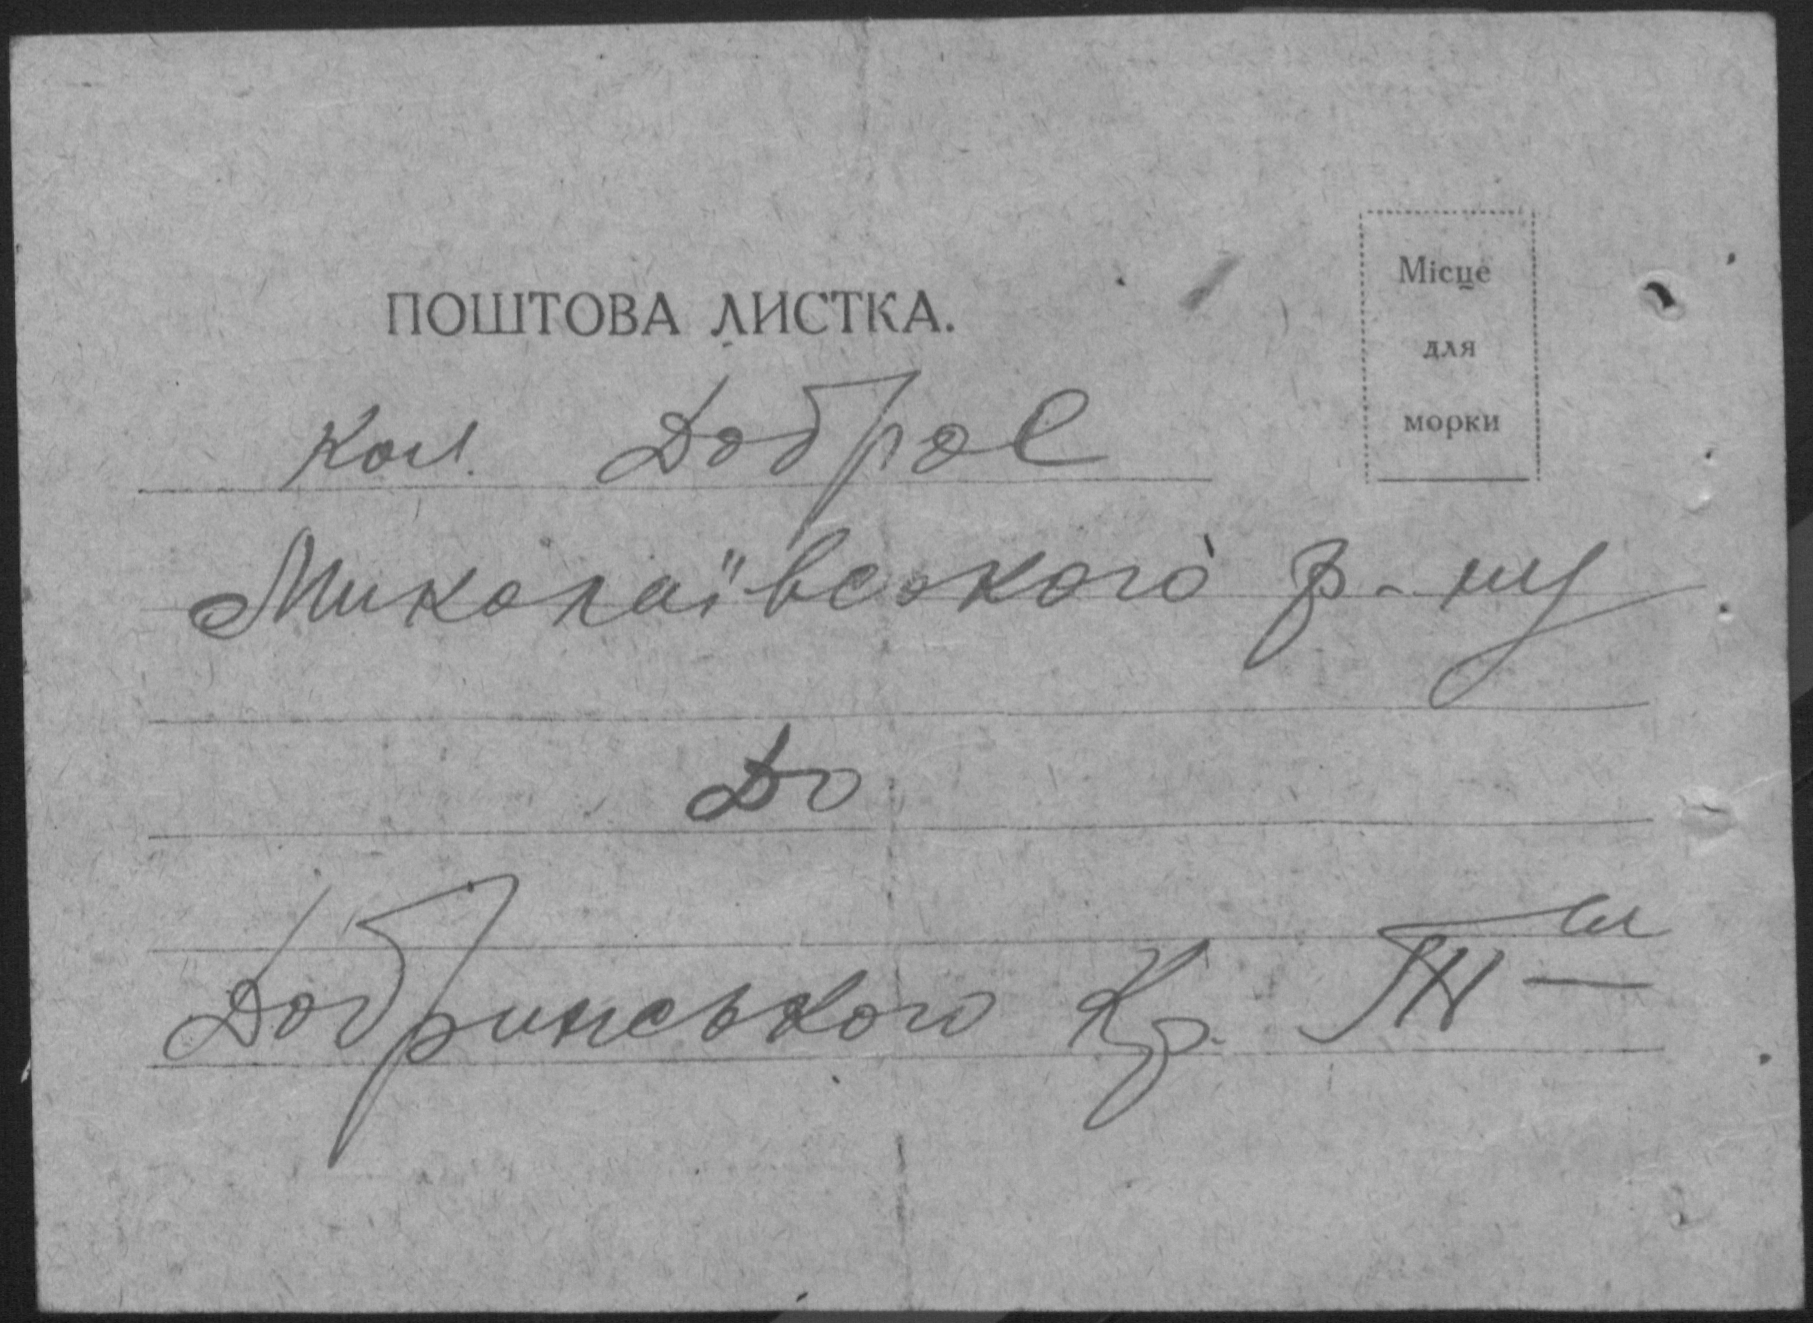 ПОШТОВА ЛИСТКА.
Місце
для
морки
кол. Доброе
Миколаївського р-ну
До
Добринського Кр. Т-ва